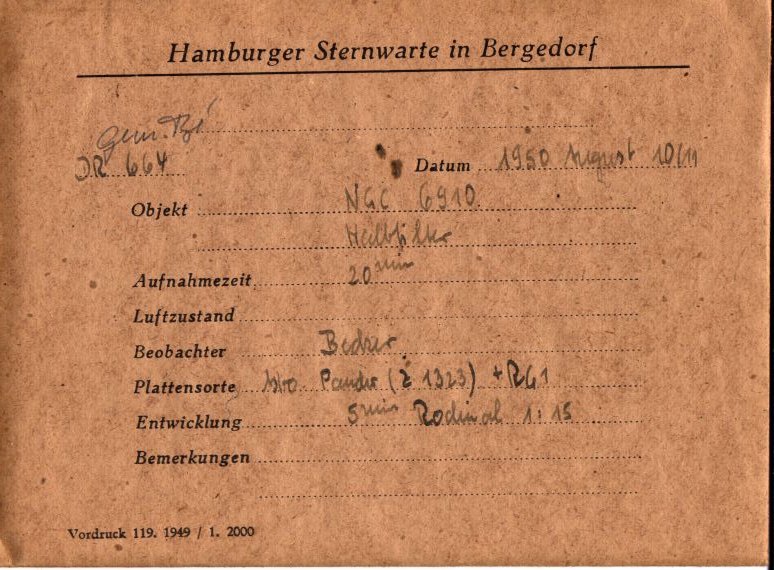 Hamburger Sternwarte in Bergedorf
gem. Bé
DR 664 Datum 1950 August 10/11
Objekt NGC 6910
Halbfilter
Aufnahmezeit 20 min
Luftzustand
Beobachter
Plattensorte (Z 1323) + RG1
Entwicklung 5 min Rodinal 1:15
Bemerkungen
Vordruck 119. 1949 / 1. 2000